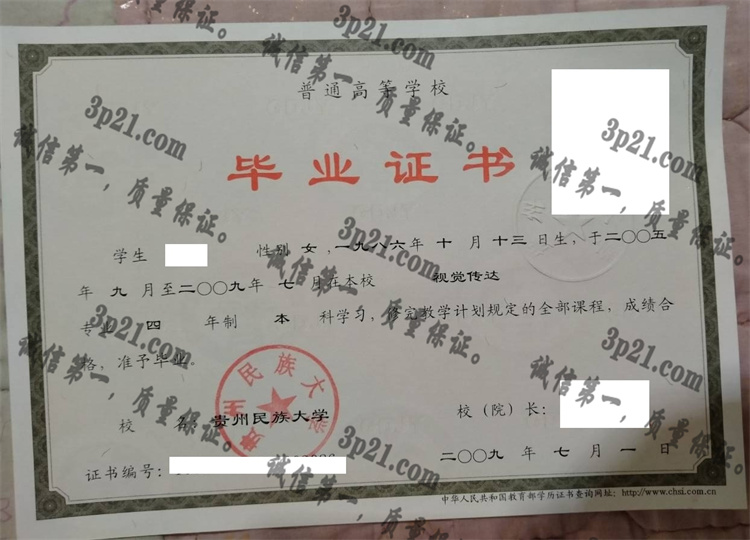 普通高等学校
毕业证书
学生 性别 女 ，一九八六年 十 月 十三 日生、于二〇〇五
年 九 月至二〇〇九年 七 月在本校 视觉传达
专业 四 年制 本 科学习，修完教学计划规定的全部课程，成绩合
格，准予毕业
校 名：贵州民族大学
校（院）长：
证书编号：
二〇〇九 年 七 月 一 日
中华人民共和国教育部学历证书查询网址：http://www.chsi.com.cn
贵州民族大学
3p21.com
诚信第一，质量保证。
3p21.com
诚信第一，质量保证。
3p21.com
诚信第一，质量保证。
3p21.com
诚信第一，质量保证。
3p21.com
诚信第一，质量保证。
3p21.com
诚信第一，质量保证。
3p21.com
诚信第一，质量保证。
3p21.com
诚信第一，质量保证。